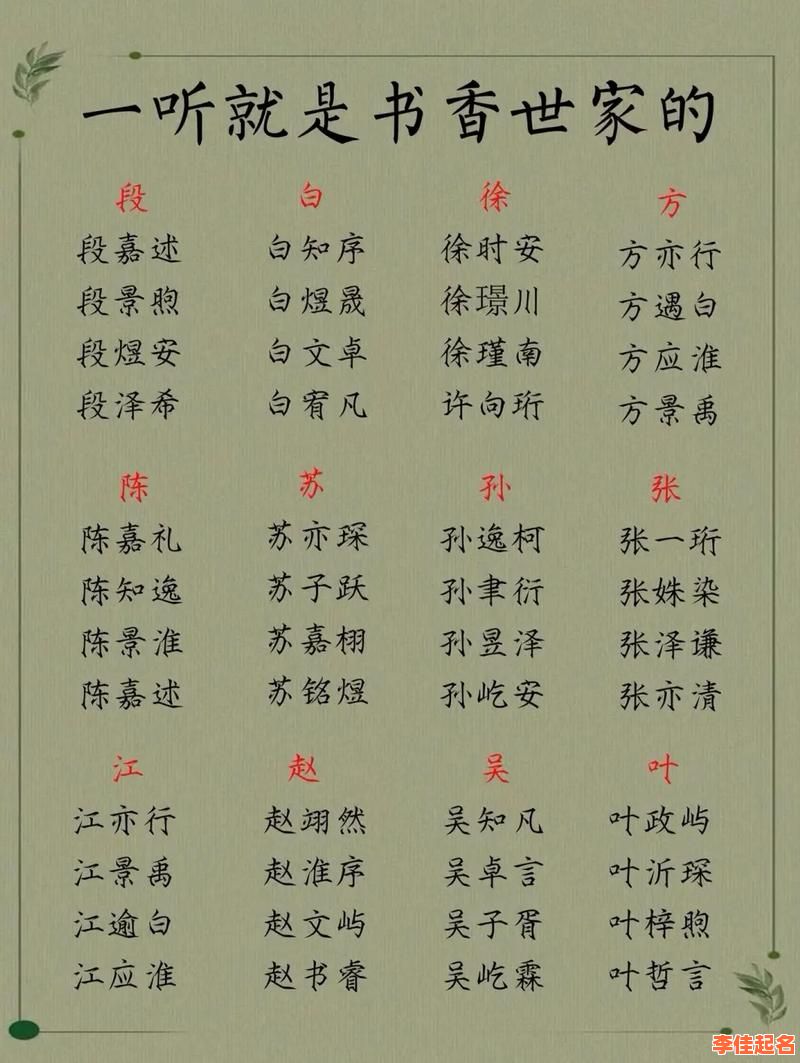 一听就是书香世家的
段 白 徐 方
段嘉述 白知序 徐时安 方亦行
段景煦 白煜晟 徐璟川 方遇白
段煜安 白文卓 徐瑾南 方应淮
段泽希 白宥凡 许向珩 方景禹
陈 苏 孙 张
陈嘉礼 苏亦琛 孙逸柯 张一珩
陈知逸 苏子跃 孙聿衍 张姝染
陈景淮 苏嘉栩 孙昱泽 张泽谦
陈嘉述 苏铭煜 孙屹安 张亦清
江 赵 吴 叶
江亦行 赵翊然 吴知凡 叶政屿
江景禹 赵淮序 吴卓言 叶沂琛
江逾白 赵文屿 吴子胥 叶梓煦
江应淮 赵书睿 吴屹霖 叶哲言
李佳起名